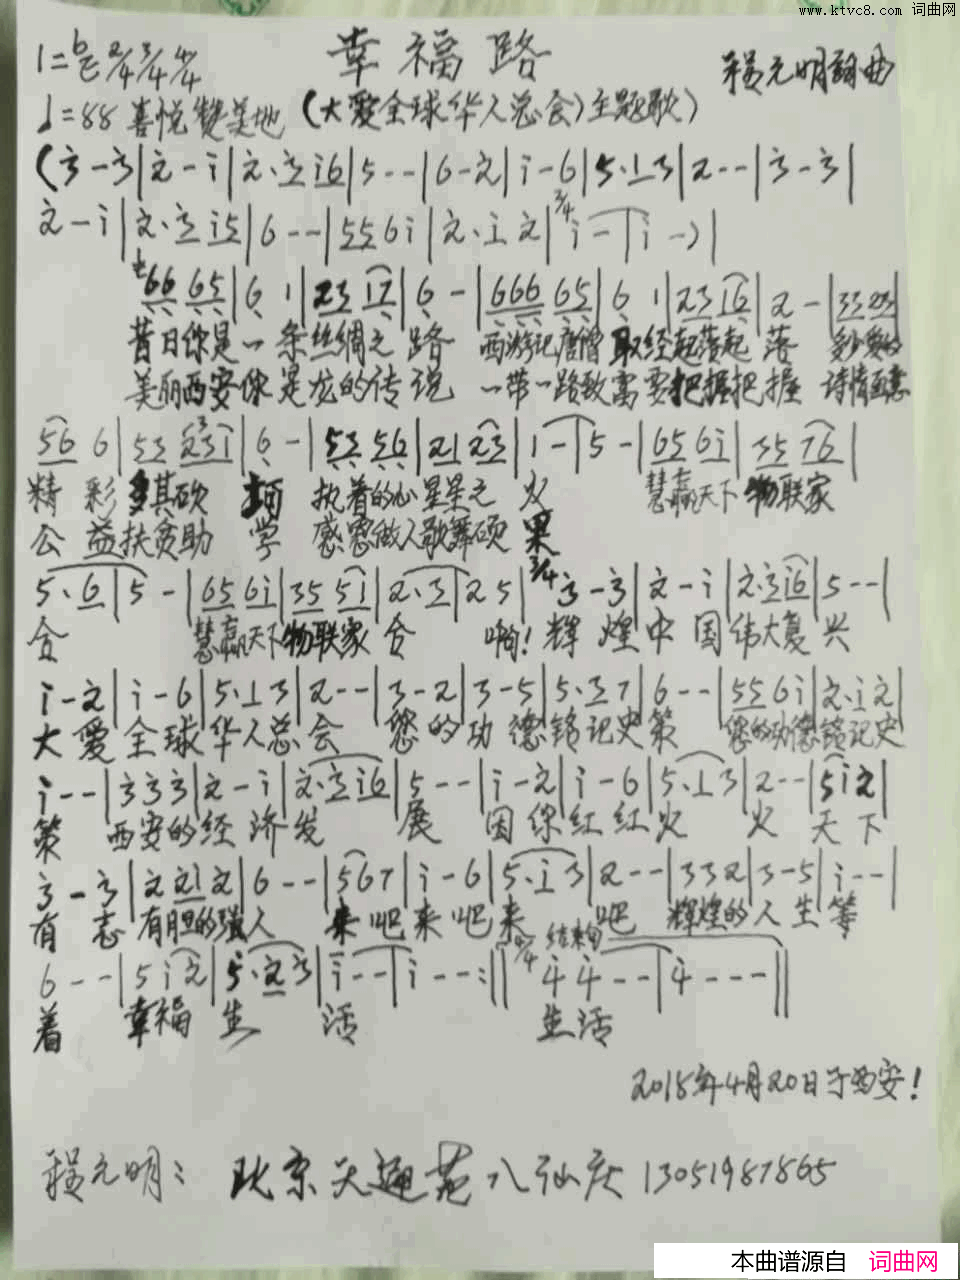 www.ktvc8.com 词曲网
1=bE 2/4 3/4 4/4 幸福路 程元明词曲
♩=88 喜悦赞美地 (大爱全球华人总会)主题歌)
(3̇-3̇|2̇-i|2̇·3̇ i6|5--|6-2̇|i-6|5·13|2--|3̇-3̇|
2̇-i|2̇·3̇ i5|6--|55 6i|2̇·i 2̇|3/4 i-|i-)|
66 65|6 1|23 17|6-|666 65|6 1|23 16|2-|33 23|
昔日你是一条丝绸之路 西游记唐僧取经起落起落 多少爱的
美丽西安你是龙的传说 一带一路致富要把握把握 诗情画意
56 6|53 231|6-|53 56|21 23|1-|5-|65 6i|35 76|
精彩多其砍 执着的心星星之火 慧赢天下物联家
公益扶贫助学 感恩做人歌舞硕果
5·6|5-|65 6i|35 5i|2·3|2 5|3/4 3̇-3̇|2̇-i|2̇·3̇ i6|5--|
合 慧赢天下物联家合 啊!辉煌中国伟大复兴
i-2̇|i-6|5·13|2--|3-2|3-5|5·37|6--|55 6i|2̇·i 2̇|
大爱全球华人总会 您的功德铭记史策 您的功德铭记史
i--|3̇3̇3̇|2̇-i|2̇·3̇ i6|5--|i-2̇|i-6|5·13|2--|5i2̇|
策 西安的经济发展 因你红红火火天下
3̇-3̇|2̇ 2̇i 2̇|6--|567|i-6|5·i3|2--|332|3-5|i--|
有志有胆的强人 来吧来吧来吧 辉煌的人生等
6--|5i2̇|5·2̇3̇|i--|i--:‖4/4 结束句 4̇ 4̇--|4̇---‖
着 幸福生活 生活
2018年4月20日于西安!
程元明: 北京天通苑八仙庆 13051987865
本曲谱源自 词曲网